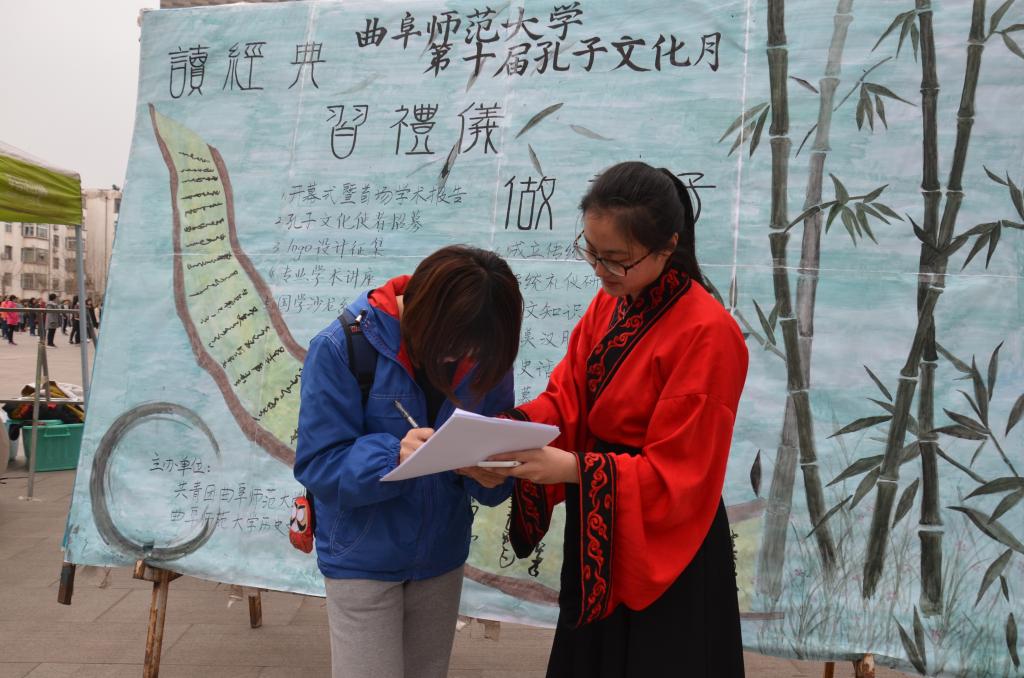 曲阜师范大学
第十届孔子文化月
讀經典
習禮儀
做 子
1.开幕式暨首场学术报告
2.孔子文化使者招募
3.logo设计征集
4.专业学术讲座
国学沙龙
成立传统
统礼仪研
文知识
汉服
史话
主办单位:
共青团曲阜师范大学
曲阜师范大学历史